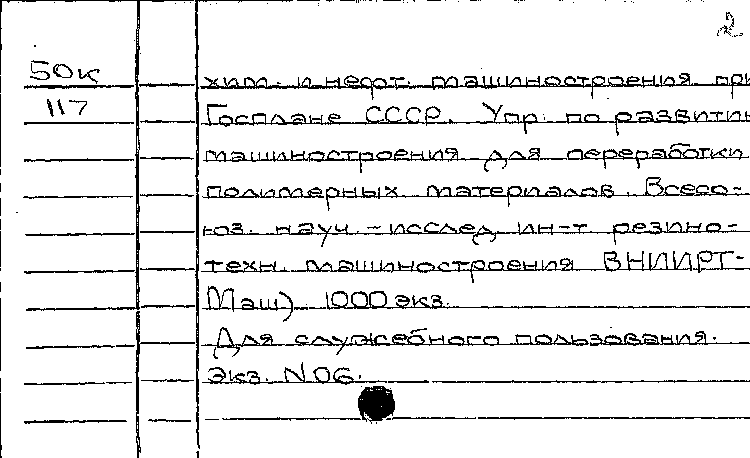 2
50к
117
хим. и нефт. машиностроения при
Госплане СССР. Упр. по развитию
машиностроения для переработки
полимерных материалов. Всесо-
юз. науч.-исслед. ин-т резино-
техн. машиностроения ВНИИРТ-
Маш) 1000 экз.
Для служебного пользования.
Экз. N 06.